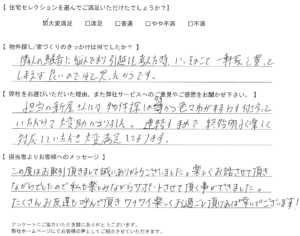 【 住宅セレクションを選んでご満足いただけたでしょうか？】
□大変満足 □満足 □普通 □やや不満 □不満
【 物件探し/家づくりのきっかけは何でしたか？ 】
隣人の騒音に悩んでおり引越を考えた時、いっそのこと一軒家を買って
しまえば良いのではと思ったからです。
【 弊社をお選びいただいた理由、また弊社サービスへのご意見やご感想をお聞かせ下さい。 】
担当の新屋さんには、物件探しの時から色々わがままにも付き合って
いただけて大変助かりました。連絡もまめで終始明るく楽しく
対応していただき大変満足しております。
【 担当者よりお客様へのメッセージ 】
この度はお取引頂きまして誠にありがとうございました。楽しくお話させて頂き
ながらでしたので私も楽しみながらサポートさせて頂く事ができました。
たくさんお友達も呼んで頂きワイワイ楽しくお過ごし頂ければ幸いでございます!
アンケートにご協力いただき誠にありがとうございます。
弊社ホームページにてお客様の声としてご紹介させていただきます。